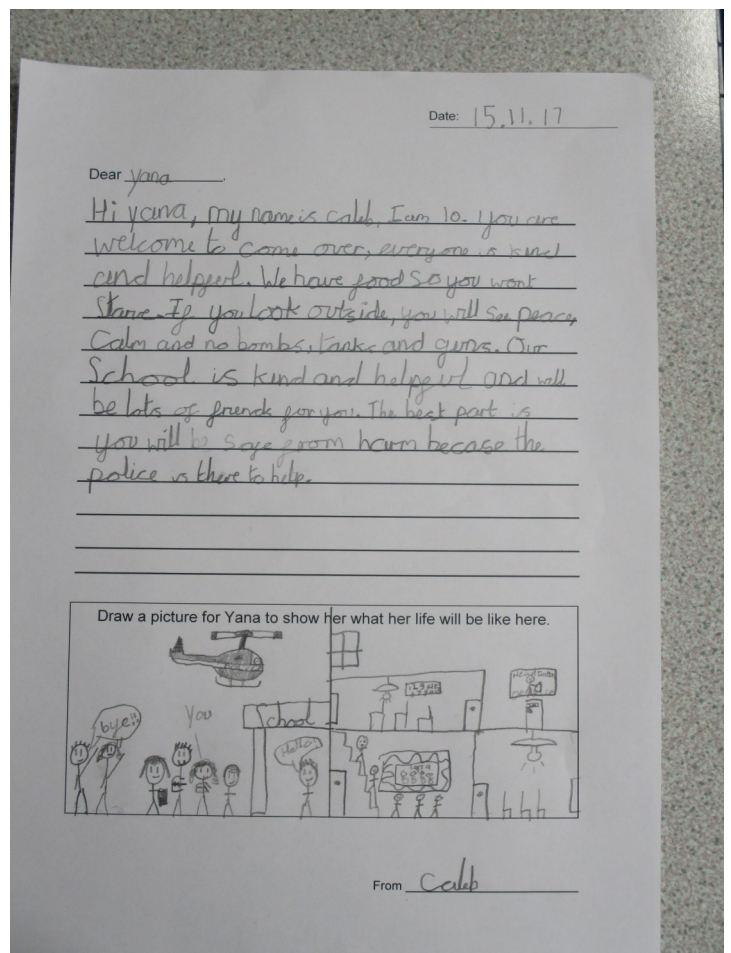 Date: 15.11.17
Dear Yana
Hi yana, my name is caleb, I am 10. You are
welcome to come over, everyone is kind
and helpful. We have food so you wont
Starve. If you look outside, you will see peace,
Calm and no bombs, tanks and guns. Our
School is kind and helpful and will
be lots of friends for you. The best part is
you will be safe from harm becase the
police is there to help.
Draw a picture for Yana to show her what her life will be like here.
bye!!
You
School
Hello
From Caleb